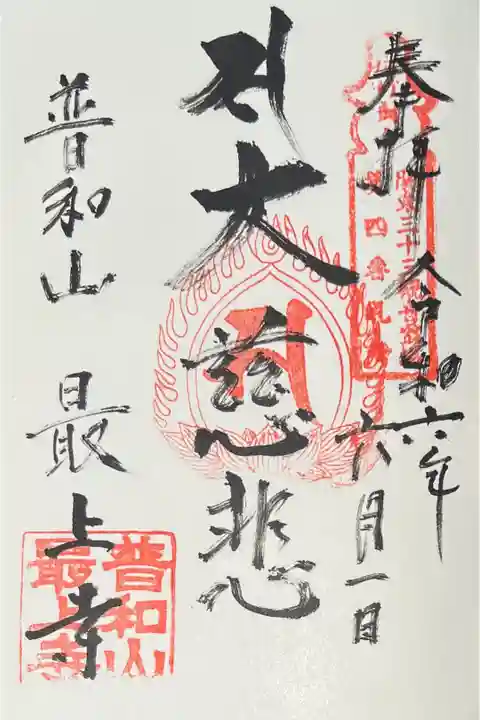 奉拝 令和六年
六月一日
大慈悲
普和山 最上寺
四番
普和山
最上寺